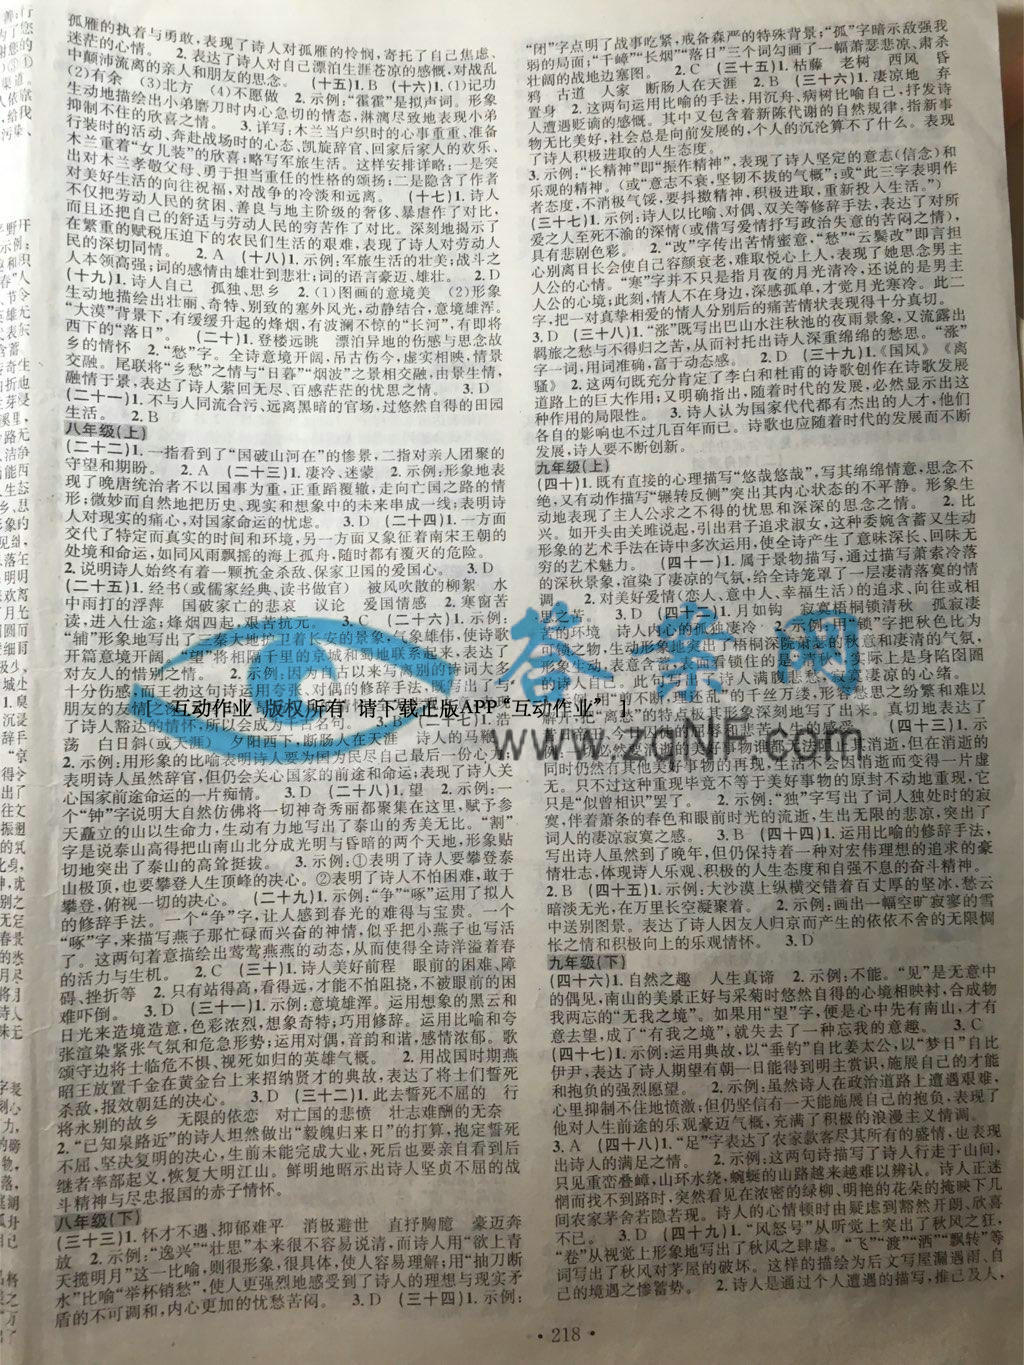 孤雁的执着与勇敢,表现了诗人对孤雁的怜悯,寄托了自己焦虑、
迷茫的心情。 2.表达了诗人对自己漂泊生涯苍凉的感慨,对战乱
中颠沛流离的亲人和朋友的思念。 (十五)1.B (十六)1.(1)记功
(2)有余 (3)北方 (4)不愿做 2.示例:“霍霍”是拟声词。形象
生动地描绘出小弟磨刀时内心急切的情态,淋漓尽致地表现小弟
抑制不住的欣喜之情。 3.详写:木兰当户织时的心事重重、准备
行装时的活动、奔赴战场时的心态、凯旋辞官、回家后家人的欢乐、
木兰重着“女儿装”的欣喜;略写军旅生活。这样安排详略:一是突
出对木兰孝敬父母、勇于担当重任的性格的颂扬;二是隐含了作者
对美好生活的向往祝福,对战争的冷淡和远离。 (十七)1.诗人
不仅把劳动人民的贫困、善良与地主阶级的奢侈、暴虐作了对比,
而且还把自己的舒适与劳动人民的穷苦作了对比。深刻地揭示了
在繁重的赋税压迫下的农民们生活的艰难,表现了诗人对劳动人
民的深切同情。 2.A (十八)1.示例:军旅生活的壮美;战斗之
人本领高强;词的感情由雄壮到悲壮;词的语言豪迈、雄壮。 2.D
(十九)1.诗人自己 孤独、思乡 2.(1)图画的意境美 (2)形象
生动地描绘出壮丽、奇特、别致的塞外风光,动静结合,意境雄浑。
“大漠”背景下,有缓缓升起的烽烟,有波澜不惊的“长河”,有即将
西下的“落日”。 (二十)1.登楼远眺 漂泊异地的伤感与思念故
乡的情怀 2.“愁”字。全诗意境开阔,吊古伤今,虚实相映,情景
交融。尾联将“乡愁”之情与“日暮”“烟波”之景相交融,由景生情,
融情于景,表达了诗人萦回无尽、百感茫茫的忧思之情。 3.D
(二十一)1.不与人同流合污、远离黑暗的官场,过悠然自得的田园
生活。 2.B
八年级(上)
(二十二)1.一指看到了“国破山河在”的惨景,二指对亲人团聚的
守望和期盼。 2.A (二十三)1.凄冷、迷蒙 2.示例:形象地表
现了晚唐统治者不以国事为重,正重蹈覆辙,走向亡国之路的情
形;微妙而自然地把历史、现实和想象中的未来串成一线;表明诗
人对现实的痛心,对国家命运的忧虑。 3.D (二十四)1.一方面
交代了特定而真实的时间和环境,另一方面又象征着南宋王朝的
处境和命运,如同风雨飘摇的海上孤舟,随时都有覆灭的危险。
2.说明诗人始终有着一颗抗金杀敌、保家卫国的爱国心。 3.D
(二十五)1.经书(或儒家经典、读书做官) 被风吹散的柳絮 水
中雨打的浮萍 国破家亡的悲哀 议论 爱国情感 2.寒窗苦
读,进入仕途;烽烟四起,艰苦抗元。 3.C (二十六)1.示例:
“辅”形象地写出了三秦大地护卫着长安的景象,气象雄伟,使诗歌
开篇意境开阔。“望”将相隔千里的京城和蜀地联系起来,表达了
对友人的惜别之情。 2.示例:因为自古以来写离别的诗词大多
十分伤感,而王勃这句诗运用夸张、对偶的修辞手法,描写了与
朋友的友情
诗人豁达的情怀,所以会成为千古名句。
荡 白日斜(或天涯) 夕阳西下,断肠人在天涯 诗人的马鞭
2.示例:用形象的比喻表明诗人要为国为民尽自己最后一份心力,
表明诗人虽然辞官,但仍会关心国家的前途和命运;表现了诗人关
心国家前途命运的一片痴情。 (二十八)1.望 2.示例:
个“钟”字说明大自然仿佛将一切神奇秀丽都聚集在这里,赋予参
天矗立的山以生命力,生动有力地写出了泰山的秀美无比。“割”
字是说泰山高得把山南山北分成光明与昏暗的两个天地,形象贴
切地突出了泰山的高耸挺拔。 3.示例:①表明了诗人要攀登泰
山极顶,也要攀登人生顶峰的决心。②表明了诗人不怕困难,敢于
攀登,俯视一切的决心。 (二十九)1.示例:“争”“啄”运用了拟人
的修辞手法。一个“争”字,让人感到春光的难得与宝贵。一个
“啄”字,来描写燕子那忙碌而兴奋的神情,似乎把小燕子也写活了
。这两句着意描绘出莺莺燕燕的动态,从而使得全诗洋溢着春
的活力与生机。 2.C (三十)1.诗人美好前程 眼前的困难、障
碍、挫折等 2.只有站得高,看得远,才能不怕阻挠,不被眼前的困
难吓倒。 (三十一)1.示例:意境雄浑。运用想象的黑云和
日光来造境造意,色彩浓烈,想象奇特;巧用修辞。运用比喻和夸
张渲染紧张气氛和危急形势;运用对偶,音韵和谐,感情浓郁。歌
颂守边将士临危不惧、视死如归的英雄气概。 2.用战国时期燕
昭王放置千金在黄金台上来招纳贤才的典故,表达了将士们誓死
杀敌,报效朝廷的决心。 3.D (三十二)1.此去誓死不屈的 行
将永别的故乡 无限的依恋 对亡国的悲愤 壮志难酬的无奈
2.“已知泉路近”的诗人坦然做出“毅魄归来日”的打算,抱定誓死
不屈、坚决复明的决心,生前未能完成大业,死后也要亲自看到后
继者率部起义,恢复大明江山。鲜明地昭示出诗人坚贞不屈的战
斗精神与尽忠报国的赤子情怀。
八年级(下)
(三十三)1.怀才不遇、抑郁难平 消极避世 直抒胸臆 豪迈奔
放 2.示例:“逸兴”“壮思”本来很不容易说清,而诗人用“欲上青
天揽明月”这一比喻,则很形象,很具体,使人容易理解;用“抽刀断
水”比喻“举杯销愁”,使人更强烈地感受到了诗人的理想与现实矛
盾的不可调和,内心更加的忧愁苦闷。 3.D (三十四)1.示例:
“闭”字点明了战事吃紧,戒备森严的特殊背景;“孤”字暗示敌强我
弱的局面;“千嶂”“长烟”“落日”三个词勾画了一幅萧瑟悲凉、肃杀
壮阔的战地边塞图。 2.C (三十五)1.枯藤 老树 西风 昏
鸦 古道 人家 断肠人在天涯 2.B (三十六)1.凄凉地 弃
置身 2.这两句运用比喻的手法,用沉舟、病树比喻自己,抒发诗
人遭遇贬谪的感慨。其中又包含着新陈代谢的自然规律,指新事
物无比美好,社会总是向前发展的,个人的沉沦算不了什么。表现
了诗人积极进取的人生态度。
3.示例:“长精神”即“振作精神”,表现了诗人坚定的意志(信念)和
乐观的精神。(或“意志不衰,坚韧不拔的气概”;或“此三字表明作
者态度,不消极气馁,要抖擞精神,积极进取,重新投入生活。”)
(三十七)1.示例:诗人以比喻、对偶、双关等修辞手法,表达了对所
爱之人至死不渝的深情(或借写爱情抒写政治失意的苦闷之情),
具有悲剧色彩。 2.“改”字传出苦情蜜意,“愁”“云鬓改”即言担
心别离日长会使自己容颜衰老,难取悦心上人,表现了她思念男主
人公的心情。“寒”字并不只是指月夜的月光清冷,还说的是男主
人公的心境;此刻,情人不在身边,深感孤单,才觉月光寒冷。此二
字,把一对真挚相爱的情人分别后的痛苦情状表现得十分真切。
3.D (三十八)1.“涨”既写出巴山水注秋池的夜雨景象,又流露出
羁旅之愁与不得归之苦,从而衬托出诗人深重绵绵的愁思。“涨”
字一词,用词准确,富于动态感。 2.D (三十九)1.《国风》《离
骚》 2.这两句既充分肯定了李白和杜甫的诗歌创作在诗歌发展
道路上的巨大作用;又明确指出,随着时代的发展,必然显示出这
种作用的局限性。 3.诗人认为国家代代都有杰出的人才,他们
各自的影响也不过几百年而已。诗歌也应随着时代的发展而不断
发展,诗人要不断创新。
九年级(上)
(四十)1.既有直接的心理描写“悠哉悠哉”,写其绵绵情意,思念不
绝,又有动作描写“辗转反侧”突出其内心状态的不平静。形象生
动地表现了主人公求之不得的忧思和深深的思念之情。 2.比
如。如开头由关雎说起,引出君子追求淑女,这种委婉含蓄又生动
形象的艺术手法在诗中多次运用,使全诗产生了意味深长、回味无
穷的艺术魅力。 (四十一)1.属于景物描写,通过描萧索冷落
的深秋景象,渲染了凄凉的气氛,给全诗笼罩了一层凄清落寞的情
调。 2.对美好爱情(恋人、意中人、幸福生活)的追求、向往或相
思之苦。 3.D (四十二)1.月如钩 寂寞梧桐锁清秋 孤寂凄
苦的环境 诗人内心的孤独凄冷 2.示例:用“锁”字把秋色比为
可锁之物,生动形象地突出了梧桐深院萧瑟的秋意和凄清的气氛,
生动形象。表意含蓄,表面看锁住的是“清秋”,实际上是身陷囹圄
的诗人自己。此句写出了诗人满腹愁思、寂寞凄凉的心绪。
时仍然有其他美好事物的再现,生活不会因消逝而变得一片虚
无。只不过这种重现毕竟不等于美好事物的原封不动地重现,它
只是“似曾相识”罢了。 2.示例:“独”字写出了词人独处时的寂
寞,伴着萧条的春色和眼前时光的流逝,生出无限的悲凉,突出了
词人的凄凉寂寞之感。 3.B (四十四)1.运用比喻的修辞手法,
写出诗人虽然到了晚年,但仍保持着一种对宏伟理想的追求的豪
情壮志,体现诗人乐观、积极的人生态度和自强不息的奋斗精神。
2.B (四十五)1.示例:大沙漠上纵横交错着百丈厚的坚冰,愁云
暗淡无光,在万里长空凝聚着。 2.示例:画出一幅空旷寂寥的雪
中送别图景。表达了诗人因友人归京而产生的依依不舍的无限惆
怅之情和积极向上的乐观情怀。 3.D
九年级(下)
(四十六)1.自然之趣 人生真谛 2.示例:不能。“见”是无意中
的偶见,南山的美景正好与采菊时悠然自得的心境相映衬,合成物
我两忘的“无我之境”。如果用“望”字,便是心中先有南山,才有
意去望,成了“有我之境”,就失去了一种忘我的意趣。 3.C
(四十七)1.示例:运用典故,以“垂钓”自比姜太公,以“梦日”自比
伊尹,表达了诗人期望有朝一日能得到明主赏识,施展自己的才能
和抱负的强烈愿望。 2.示例:虽然诗人在政治道路上遭遇艰难,
心里抑制不住地愤激;但仍坚信有一天能施展自己的抱负,表现了
他对人生前途的乐观豪迈气概,充满了积极的浪漫主义情调。
3.A (四十八)1.“足”字表达了农家款客尽其所有的盛情,也表现
出诗人的满足之情。 2.示例:这两句诗描写了诗人行走于山间,
只见重峦叠嶂,山环水绕,蜿蜒的山路越来越难以辨认。诗人正迷
惘而找不到路时,突然看见在浓密的绿柳、明艳的花朵的掩映下几
间农家茅舍若隐若现。诗人的心情顿时由疑虑到豁然开朗、欣喜
不已。 3.D (四十九)1.“风怒号”从听觉上突出了秋风之狂,
“卷”从视觉上形象地写出了秋风之肆虐。“飞”“渡”“洒”“飘转”等
词写出了秋风对茅屋的破坏。这样的描绘为后文写屋漏遇雨、自
己的境遇之惨蓄势。 2.诗人是通过个人遭遇的描写,推己及人,
· 218 ·
[ 互动作业 版权所有 请下载正版APP“互动作业” ]
答案网
www.zqNF.com